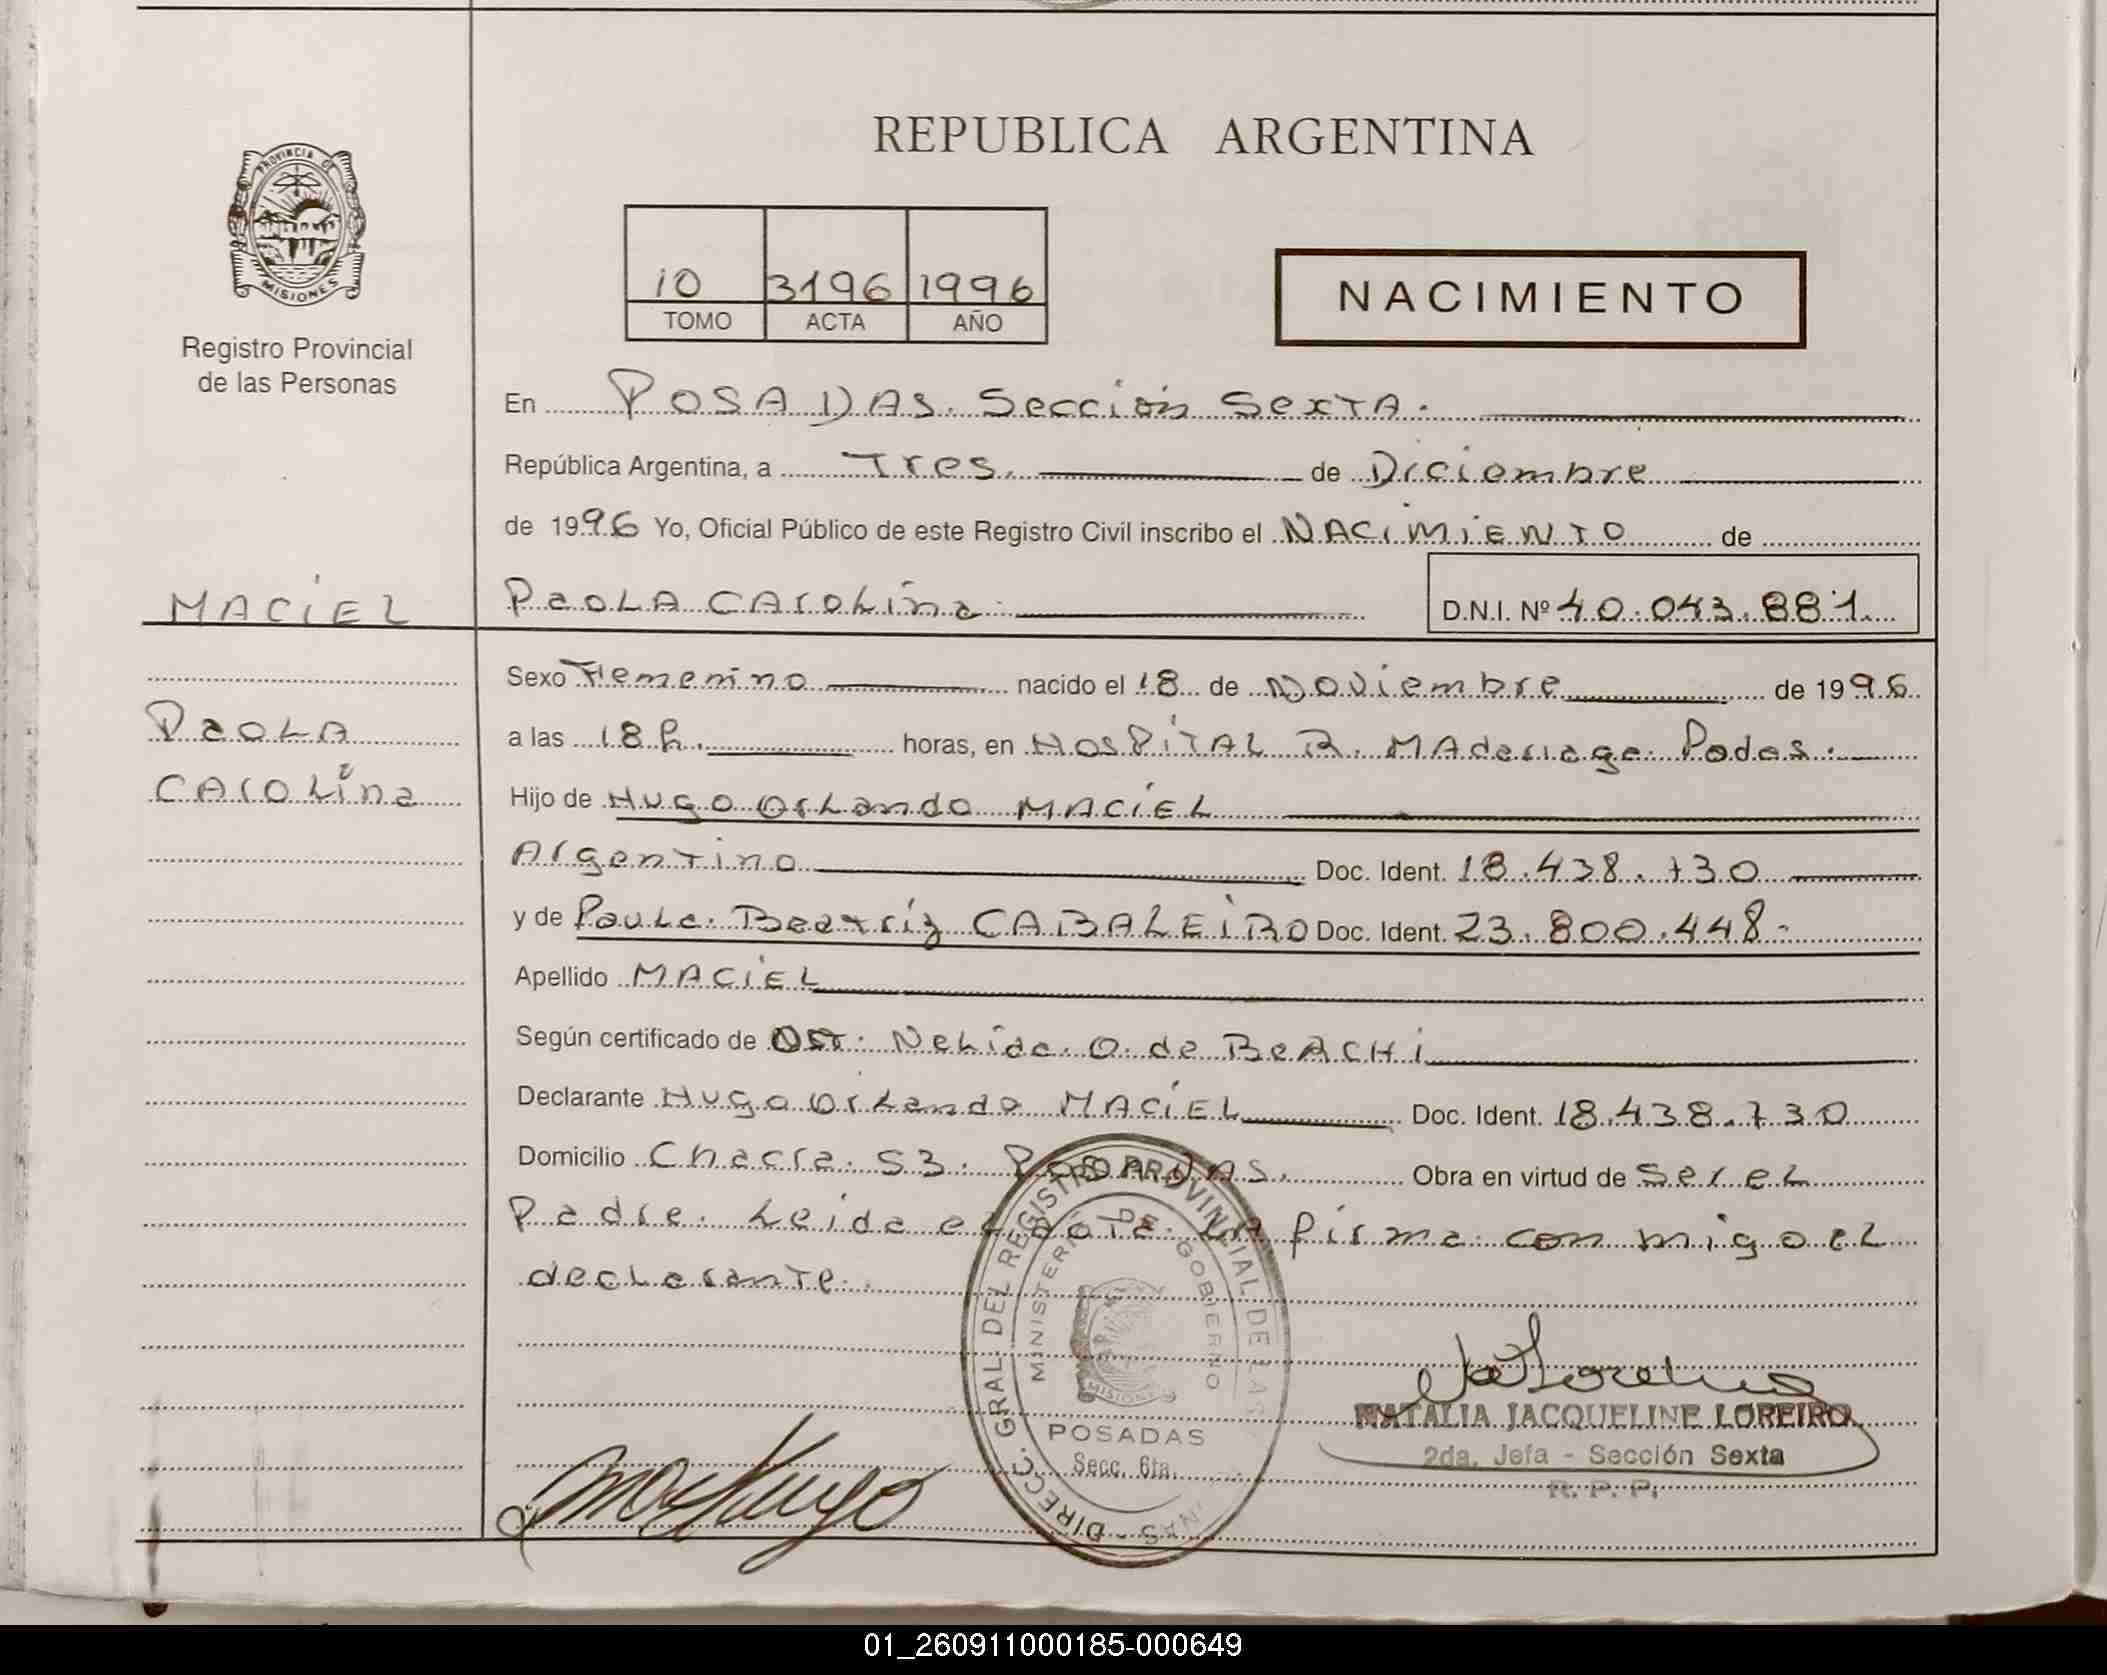 REPUBLICA ARGENTINA
PROVINCIA DE
MISIONES
Registro Provincial
de las Personas
10 3196 1996
TOMO ACTA AÑO
NACIMIENTO
En POSADAS. Sección Sexta.
República Argentina, a Tres. de Diciembre
de 1996 Yo, Oficial Público de este Registro Civil inscribo el NACIMIENTO de
MACIEL
Paola Carolina D.N.I. Nº 40.043.881.
Sexo Femenino nacido el 18 de Noviembre de 1996
Paola
Carolina
a las 18 h. horas, en HOSPITAL R. Madariaga. Podas.
Hijo de Hugo Orlando MACIEL
Argentino Doc. Ident. 18.438.730
y de Paula Beatriz CABALEIRO Doc. Ident. 23.800.448.
Apellido MACIEL
Según certificado de Nelida O. de BEACHI
Declarante Hugo Orlando MACIEL Doc. Ident. 18.438.730
Domicilio Chacra. 53. POSADAS. Obra en virtud de ser el
Padre. Leida el acta. La firma conmigo el
declarante.
DIRECC. GRAL DEL REGISTRO PROVINCIAL DE LAS
MINISTERIO DE GOBIERNO
MISIONES
POSADAS
Secc. 6ta.
NATALIA JACQUELINE LOREIRO
2da. Jefa - Sección Sexta
R. P. P.
01_260911000185-000649